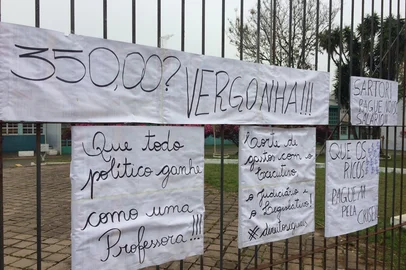 350,00? VERGONHA!!!
SARTORI
PAGUE NOSSO
SALÁRIO!
Que todo
político ganhe
como uma
Professora!!!
Corte de
gastos com o
Executivo
o Judiciário e
o Legislativo!
QUE OS
RICOS
PAGUEM
PELA
CRISE!